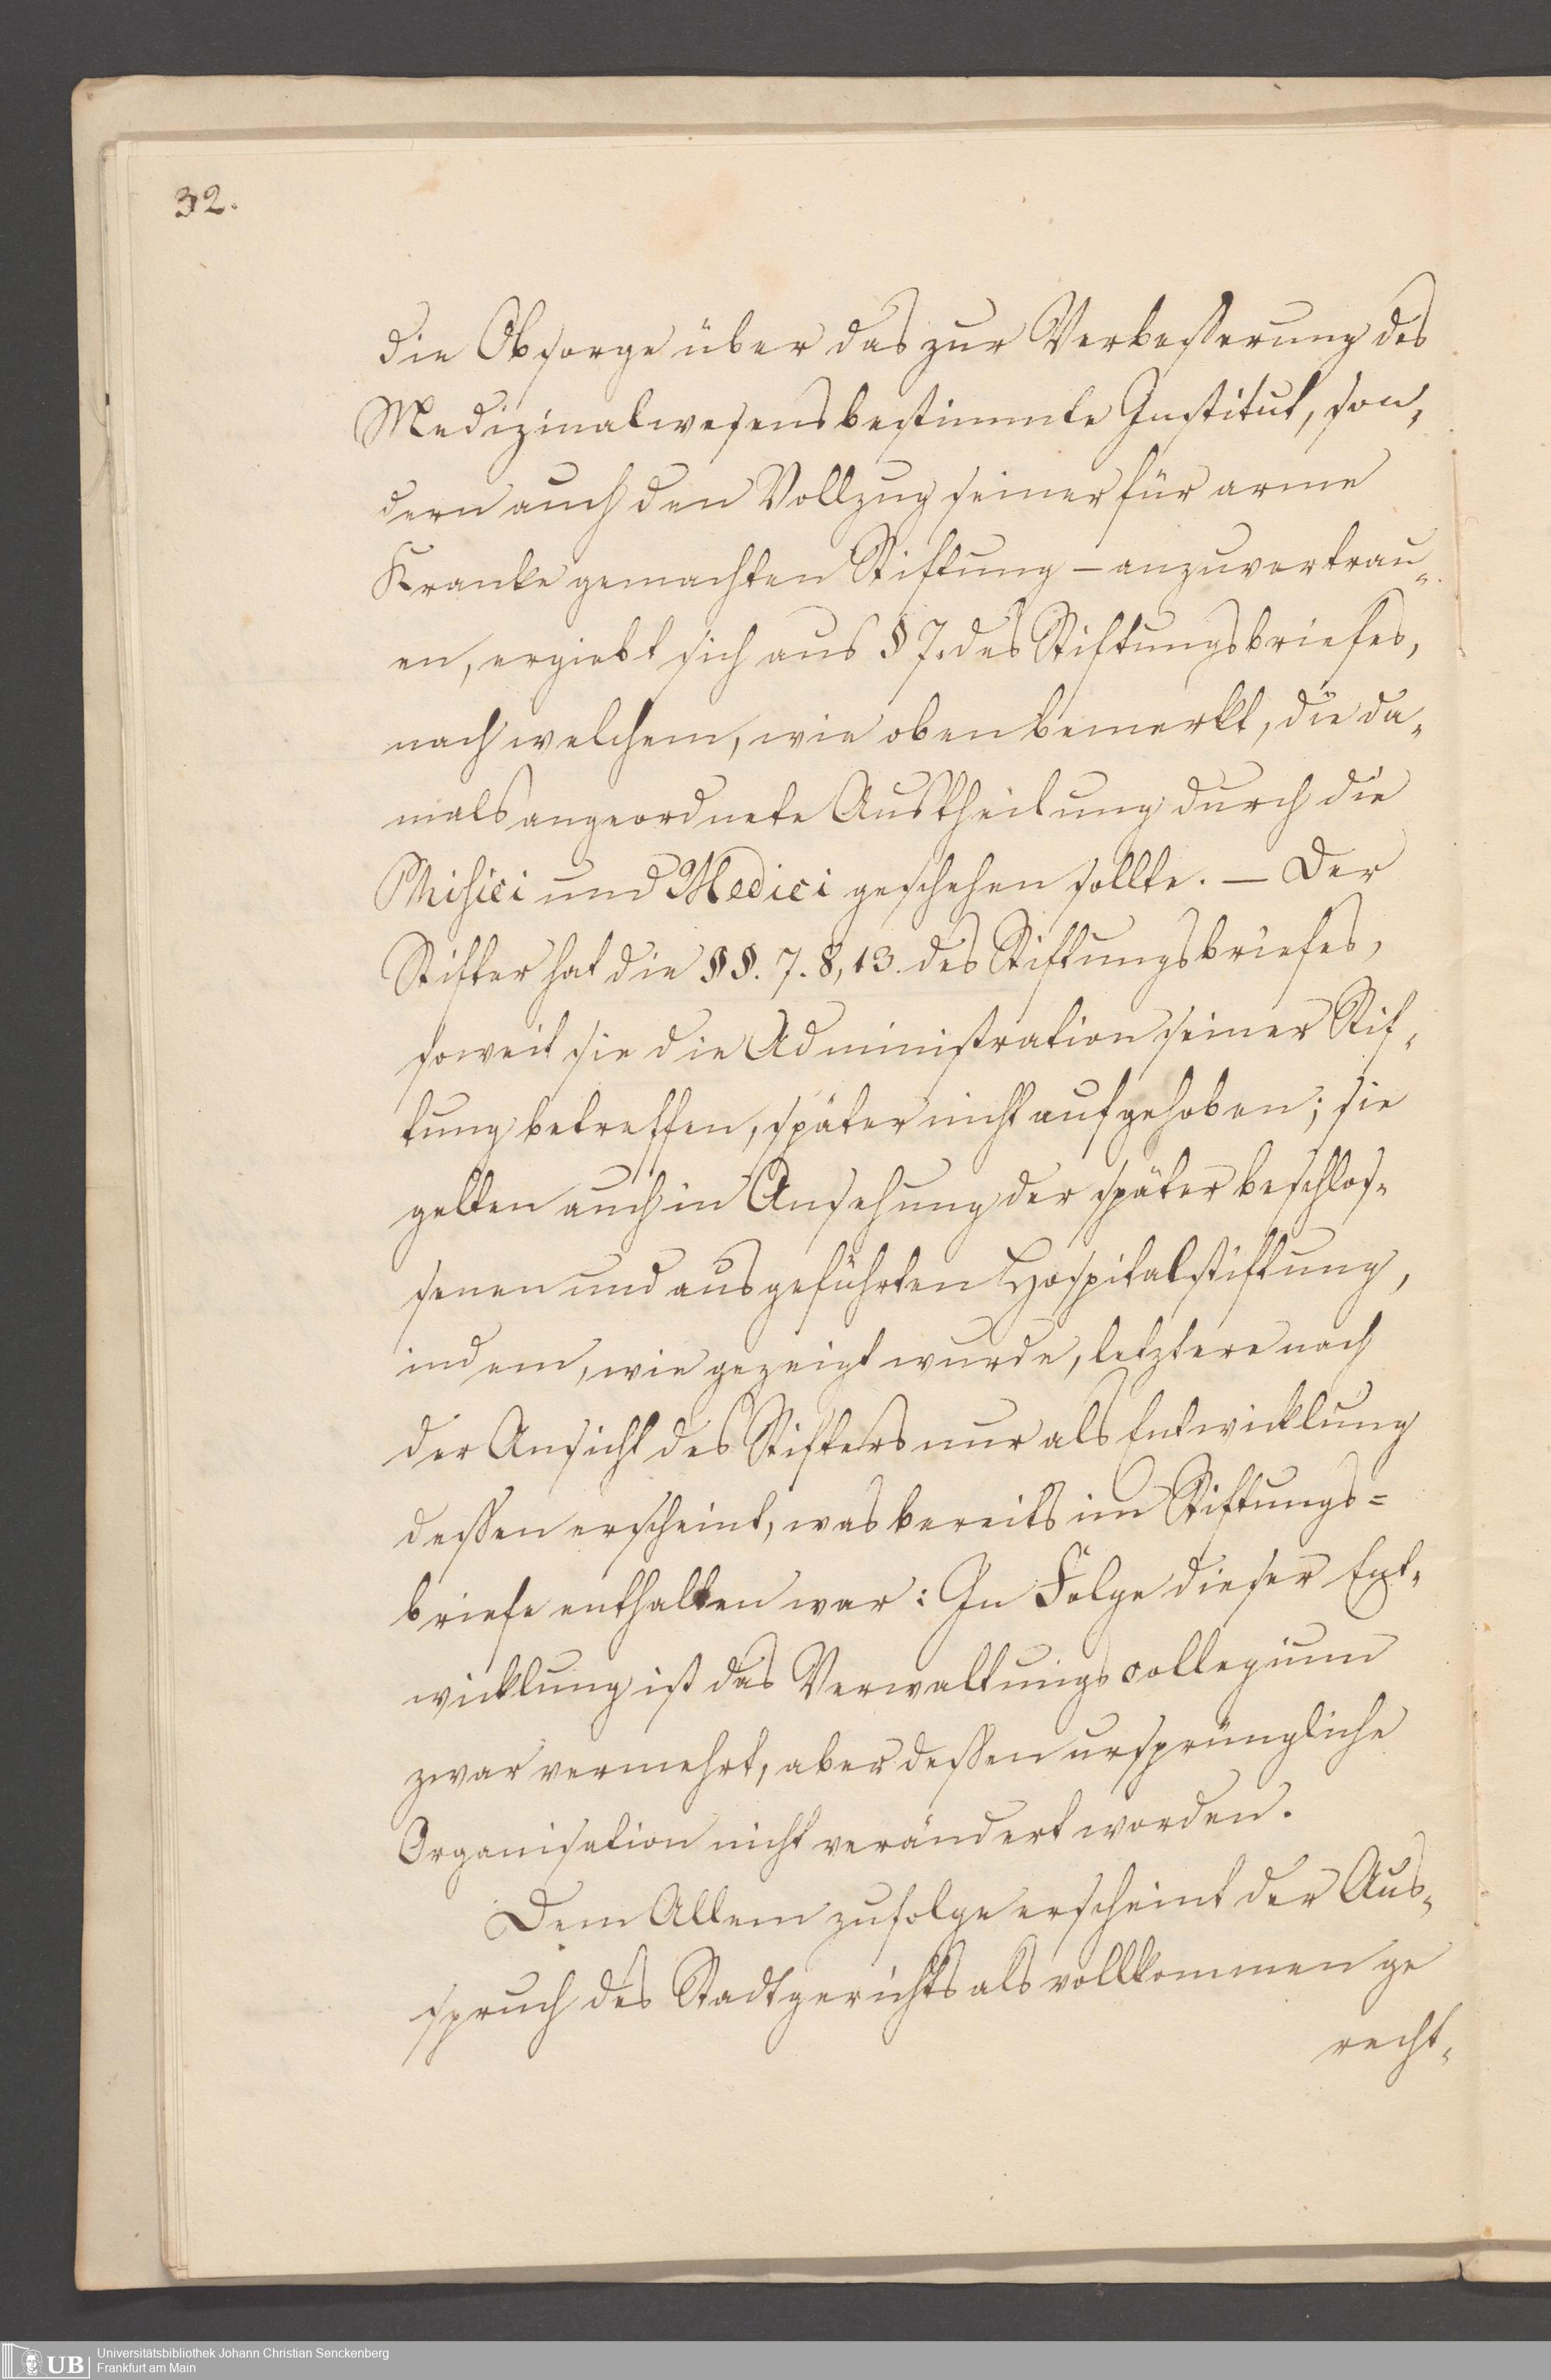 32.
die Obsorge über das zur Verbesserung des
Medizinalwesens bestimmte Institut, son„
dern auch den Vollzug seiner für arme
Kranke gemachten Stiftung – anzuvertrau„
en, ergiebt sich aus § 7. des Stiftungsbriefes,
nach welchem, wie oben bemerkt, die da„
mals angeordnete Austheilung durch die
Phisici und Medici geschehen sollte. – Der
Stifter hat die §§. 7. 8, 13. des Stiftungsbriefes,
soweit sie die Administration seiner Stif„
tung betreffen, später nicht aufgehoben; sie
gelten auch in Ansehung der später beschlos„
senen und ausgeführten Hospitalstiftung,
indem, wie gezeigt wurde, letztere nach
der Ansicht des Stifters nur als Entwicklung
dessen erscheint, was bereits im Stiftungs=
briefe enthalten war: In Folge dieser Ent„
wicklung ist das Verwaltungscollegium
zwar vermehrt, aber dessen ursprüngliche
Organisation nicht verändert worden.
Dem Allem zufolge erscheint der Aus„
spruch des Stadtgerichts als vollkommen ge
recht„
UB Universitätsbibliothek Johann Christian Senckenberg
Frankfurt am Main